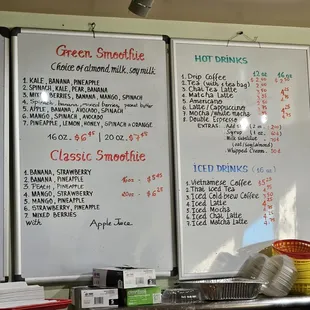 Green Smoothie
Choice of almond milk, soy milk
1. KALE, BANANA, PINEAPPLE
2. SPINACH, KALE, PEAR, BANANA
3. MIXED BERRIES, BANANA, MANGO, SPINACH
4. Spinach, banana, mixed berries, peanut butter
5. APPLE, BANANA, AVOCADO, SPINACH
6. MANGO, SPINACH, AVOCADO
7. PINEAPPLE, LEMON, HONEY, SPINACH & ORANGE
16 oz. | 20 oz.
Classic Smoothie
1. BANANA, STRAWBERRY
2. BANANA, PINEAPPLE
3. PEACH, PINEAPPLE
4. MANGO, STRAWBERRY
5. MANGO, PINEAPPLE
6. STRAWBERRY, PINEAPPLE
7. MIXED BERRIES
With Apple Juice
HOT DRINKS
12 oz 16 oz
1. Drip Coffee
2. Tea (with tea bag)
3. Chai Tea Latte
4. Matcha Latte
5. Americano
6. Latte / Cappuccino
7. Mocha / white mocha
8. Double Espresso
EXTRAS: Add
Syrup
Milk substitute
Whipped Cream
ICED DRINKS 16 oz
1. Vietnamese Coffee
2. Iced Coffee
3. Iced Cold brew Coffee
4. Iced Latte
5. Iced Mocha
6. Iced Chai Latte
7. Iced Matcha Latte